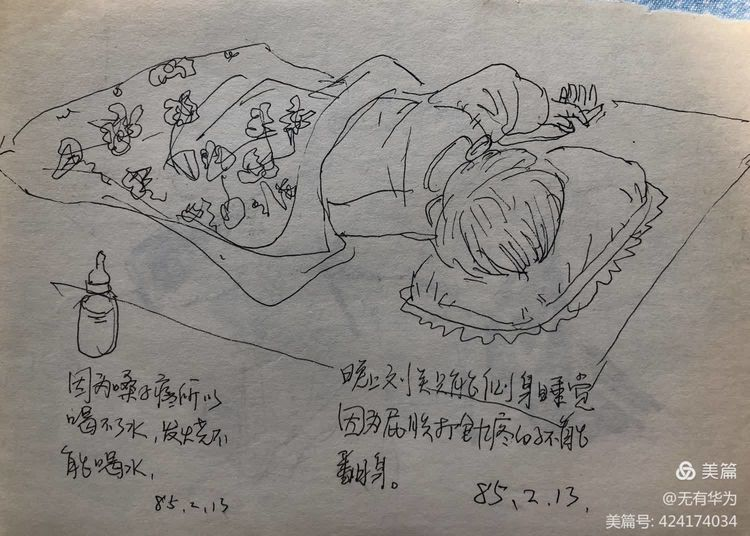 因为嗓子疼所以
喝不了水,发烧不
能喝水,
85.2.13
晚上刘只能侧身睡觉
因为屁股打针疼的不能
翻身。
85.2.13.
美篇
@无有华为
美篇号: 424174034